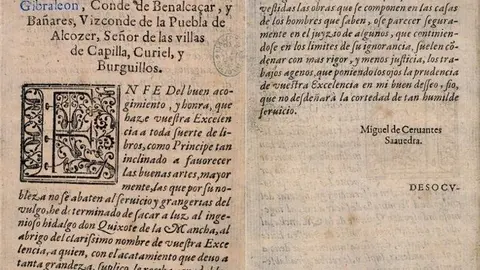 Gibraleon, Conde de Benalcaçar, y
Bañares, Vizconde de la Puebla de
Alcozer, Señor de las villas
de Capilla, Curiel, y
Burguillos.
EN FE Del buen aco-
gimiento, y honra, que
haze vuestra Excelen-
cia a toda suerte de li-
bros, como Principe tan
inclinado a fauorecer
las buenas artes, mayor
mente, las que por su no-
bleza no se abaten al seruicio y grangerias del
vulgo, he determinado de sacar a luz, al inge-
nioso hidalgo don Quixote de la Mancha, al
abrigo del clarissimo nombre de vuestra Exce-
lencia, a quien, con el acatamiento que deuo a
tanta grandeza, suplico
vestidas las obras que se componen en las casas
de los hombres que saben, ose parecer segura-
mente en el juyzio de algunos, que continien-
dose en los limites de su ignorancia, suelen cō-
denar con mas rigor, y menos justicia, los tra-
bajos agenos, que poniendo los ojos la prudencia
de vuestra Excelencia en mi buen desseo, fio,
que no desdeñarà la cortedad de tan humilde
seruicio.
Miguel de Ceruantes
Saauedra.
DESOCV-